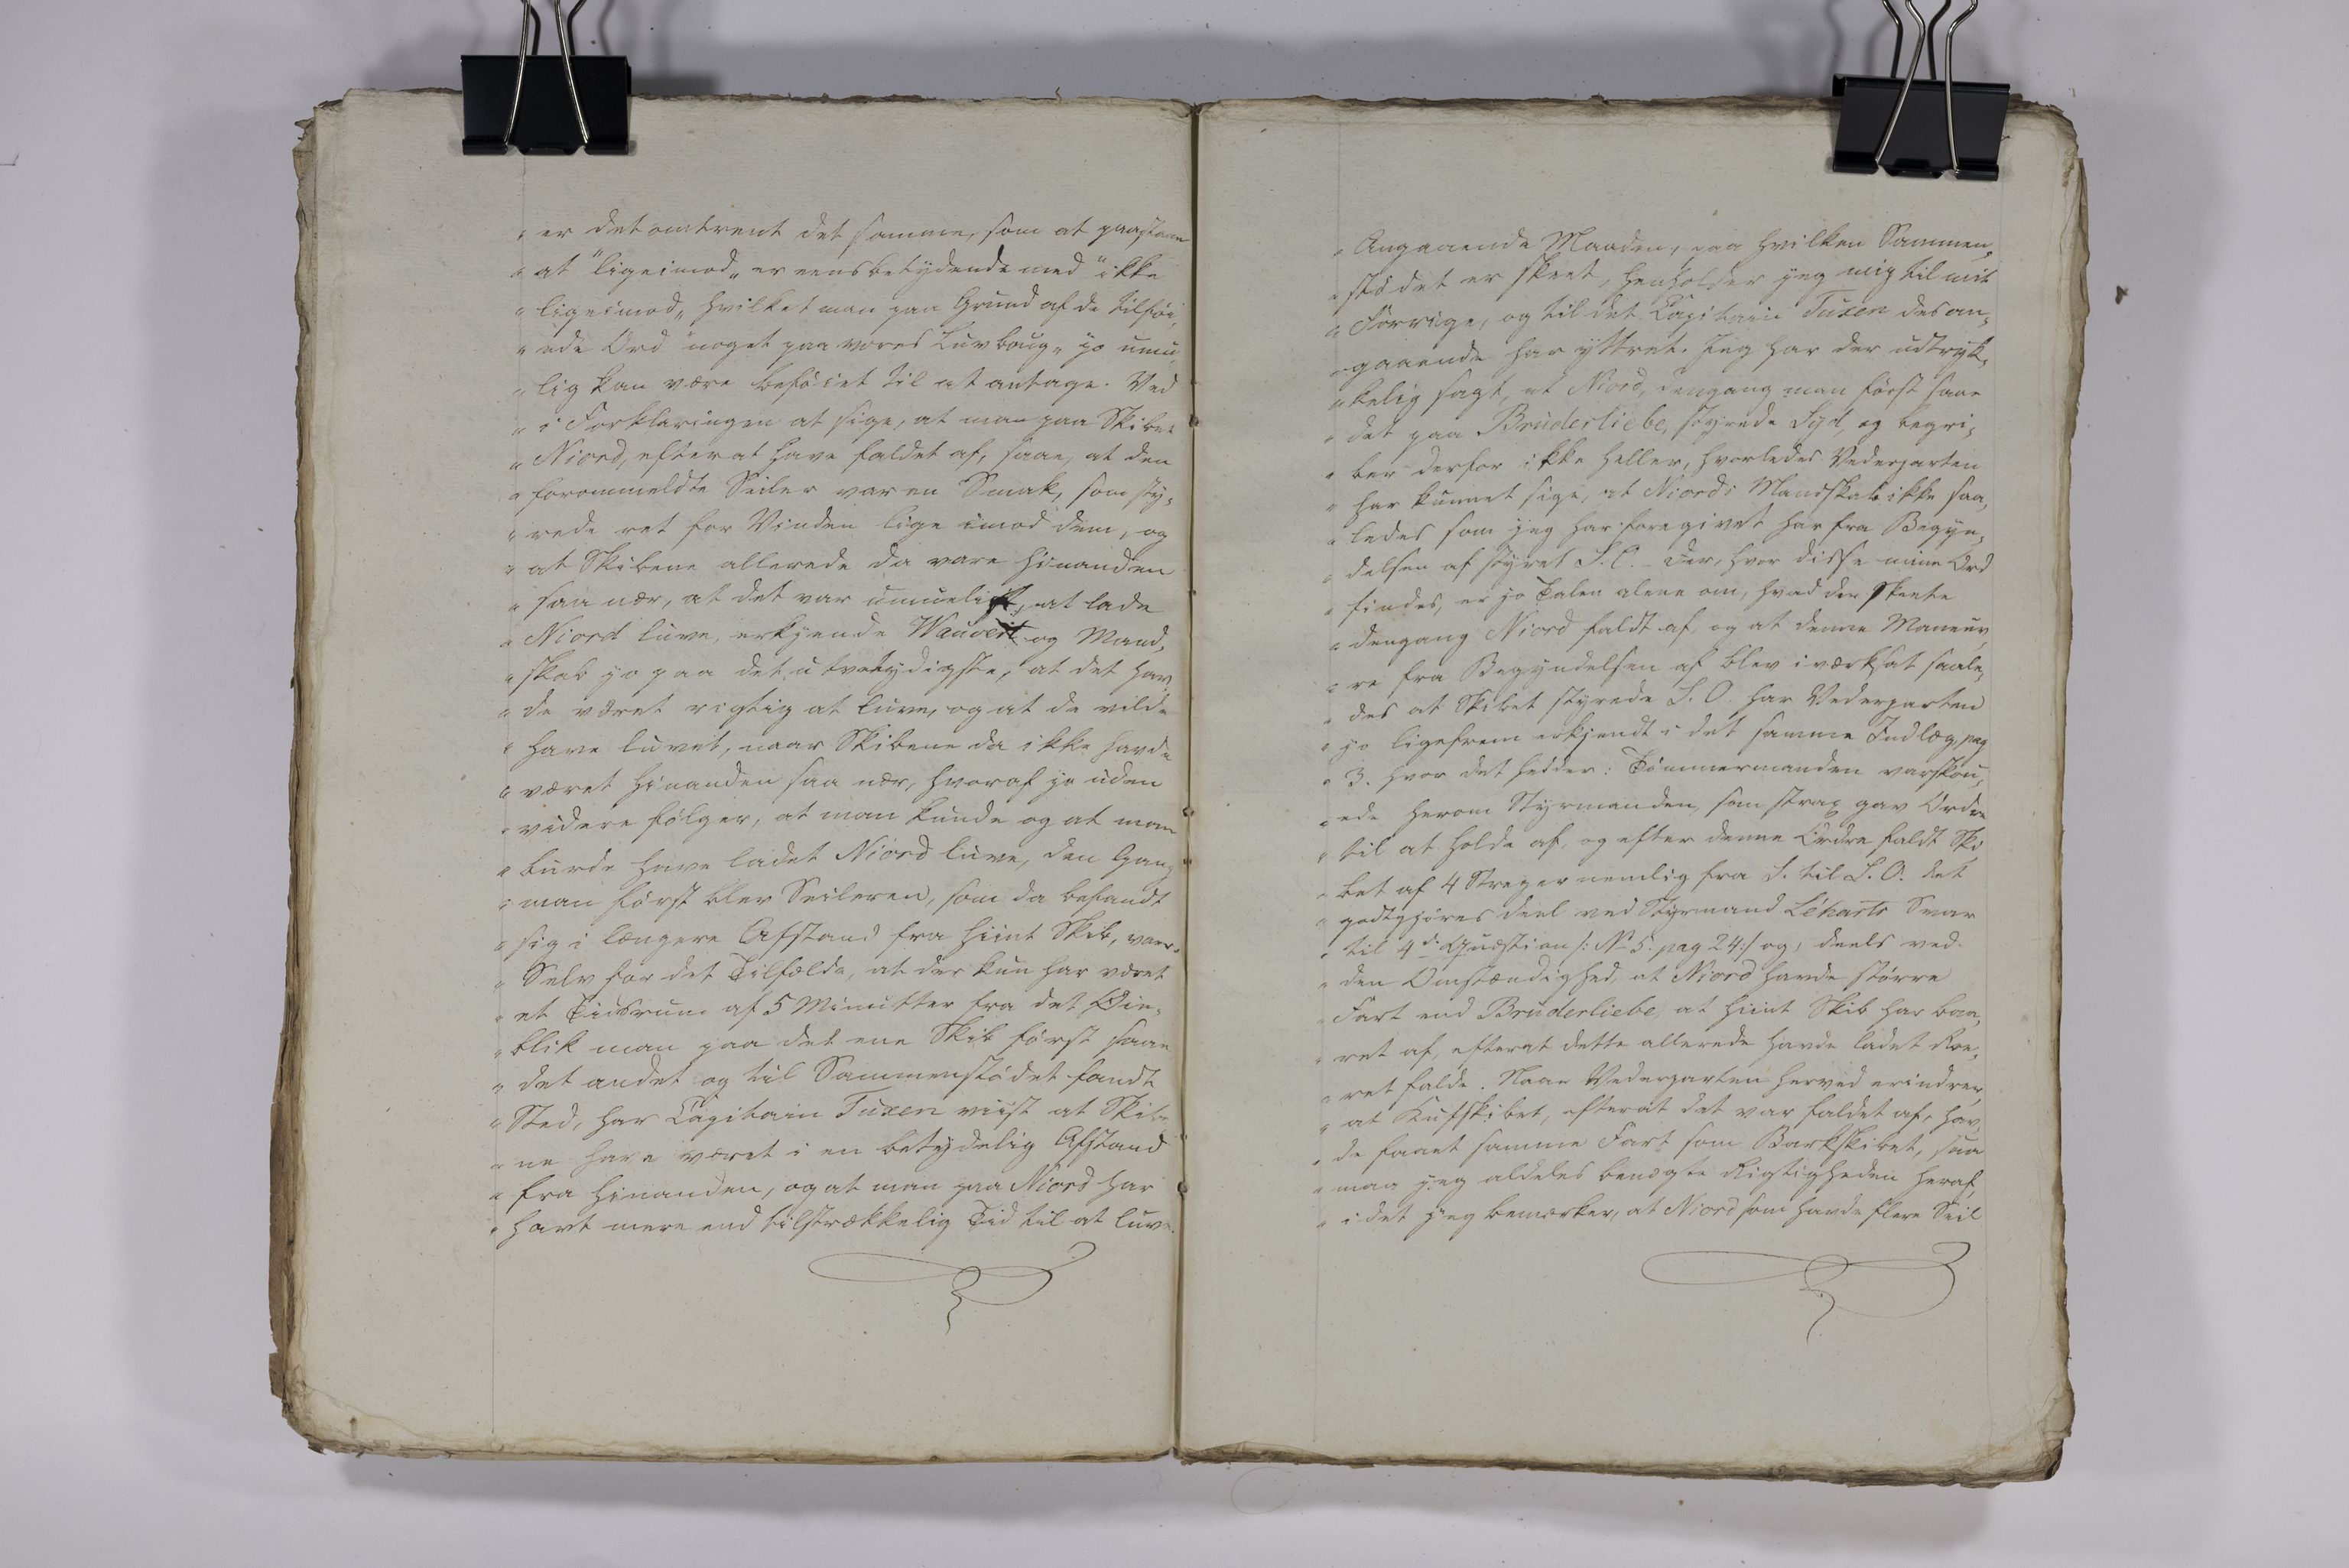 " er det omtrent det samme, som at paastaae
" at "ligeimod" er eensbetydende med "ikke
" ligeimod", hvilket man paa Grund af de tilføi,
" ede Ord "noget paa vores Luvboug" jo umu,
" lig kan være beføiet til at antage. Ved
" i Forklaringen at sige, at man paa Skibet
" Niord, efter at have faldet af, saae, at den
" forommeldte Seiler var en Smak, som sty,
" rede ret for Vinden lige imod dem, og
" at Skibene allerede da vare hinanden
" saa nær, at det var umueligt, at lade
" Niord luve, erkjende Wauvert og Mand,
" skab jo paa det utvetydigste, at det hav,
" de været rigtig at luve, og at de vilde
" have luvet, naar Skibene da ikke havde
" været hinanden saa nær, hvoraf jo uden
" videre følger, at man kunde og at man
" burde have ladet Niord luve, den Gang
" man først blev Seileren, som da befandt
" sig i længere Afstand fra hiint Skib, vaer.
" Selv for det Tilfælde, at der kun har været
" et Tidsrum af 5 Minutter fra det Øie,
" blik man paa det ene Skib først saae
" det andet og til Sammenstødet fandt
" Sted, har Capitain Tuxen viist at Skibe
" ne have været i en betydelig Afstand
" fra hinanden, og at man paa Niord har
" havt mere end tilstrækkelig Tid til at luve.
" Angaaende Maaden, paa hvilken Sammen,
" stødet er skeet, henholder jeg mig til mit
" Forrige, og til det Capitain Tuxen desan,
" gaaende har yttret. Jeg har der udtryk,
" kelig sagt, at Niord, dengang man først saae
" det paa Brüderliebe, styrede Syd, og begri,
" ber derfor ikke heller, hvorledes Vederparten
" har kunnet sige, at Niords Mandskab ikke saa,
" ledes som jeg har foregivet har fra Begyn,
" delsen af styret S.O. - Der, hvor disse mine Ord
" findes, er jo Talen alene om, hvad der skeete
" dengang Niord faldt af, og at denne Maneuv,
" re fra Begyndelsen af blev iværksat saale,
" des at Skibet styrede S.O. har Vederparten
" jo ligefrem erkjendt i det samme Indlæg, pag
" 3. hvor det hedder: Tømmermanden varskou,
" ede herom Styrmanden, som strax gav Ordre
" til at holde af, og efter denne Ordre faldt Ski
" bet af 4 Streger nemlig fra S. til S.O. det
" godtgjøres deel ved Styrmand Léharts Svar
" til 4de Quæstion /: No 5. pag 24:/ og, deels ved
" den Omstændighed, at Niord havde større
" Fart end Brüderliebe, at hiint Skib har baa,
" ret af, efterat dette allerede havde ladet Roe,
" ret falde. Naar Vederparten herved erindrer,
" at Kufskibet, efterat det var faldet af, hav,
" de faaet samme Fart som Barkskibet, saa
" maa jeg aldeles benægte Rigtigheden heraf,
" i det jeg bemærker, at Niord som havde flere Seil